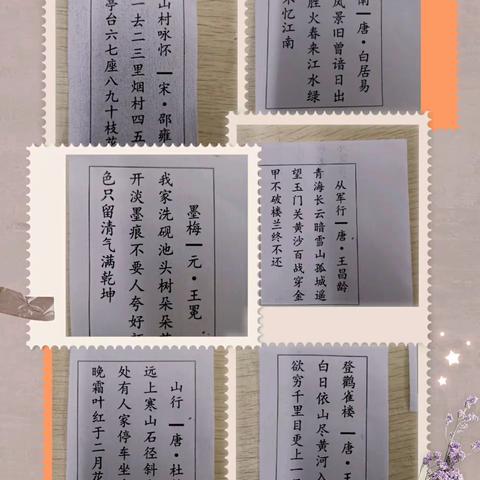 山村咏怀—宋·邵雍
一去二三里烟村四五
亭台六七座八九十枝花
南—唐·白居易
风景旧曾谙日出
胜火春来江水绿
不忆江南
墨梅—元·王冕
我家洗砚池头树朵朵
开淡墨痕不要人夸好
色只留清气满乾坤
从军行—唐·王昌龄
青海长云暗雪山孤城遥
望玉门关黄沙百战穿金
甲不破楼兰终不还
山行—唐·杜
远上寒山石径斜
处有人家停车坐
晚霜叶红于二月花
登鹳雀楼—唐·王
白日依山尽黄河入
欲穷千里目更上一